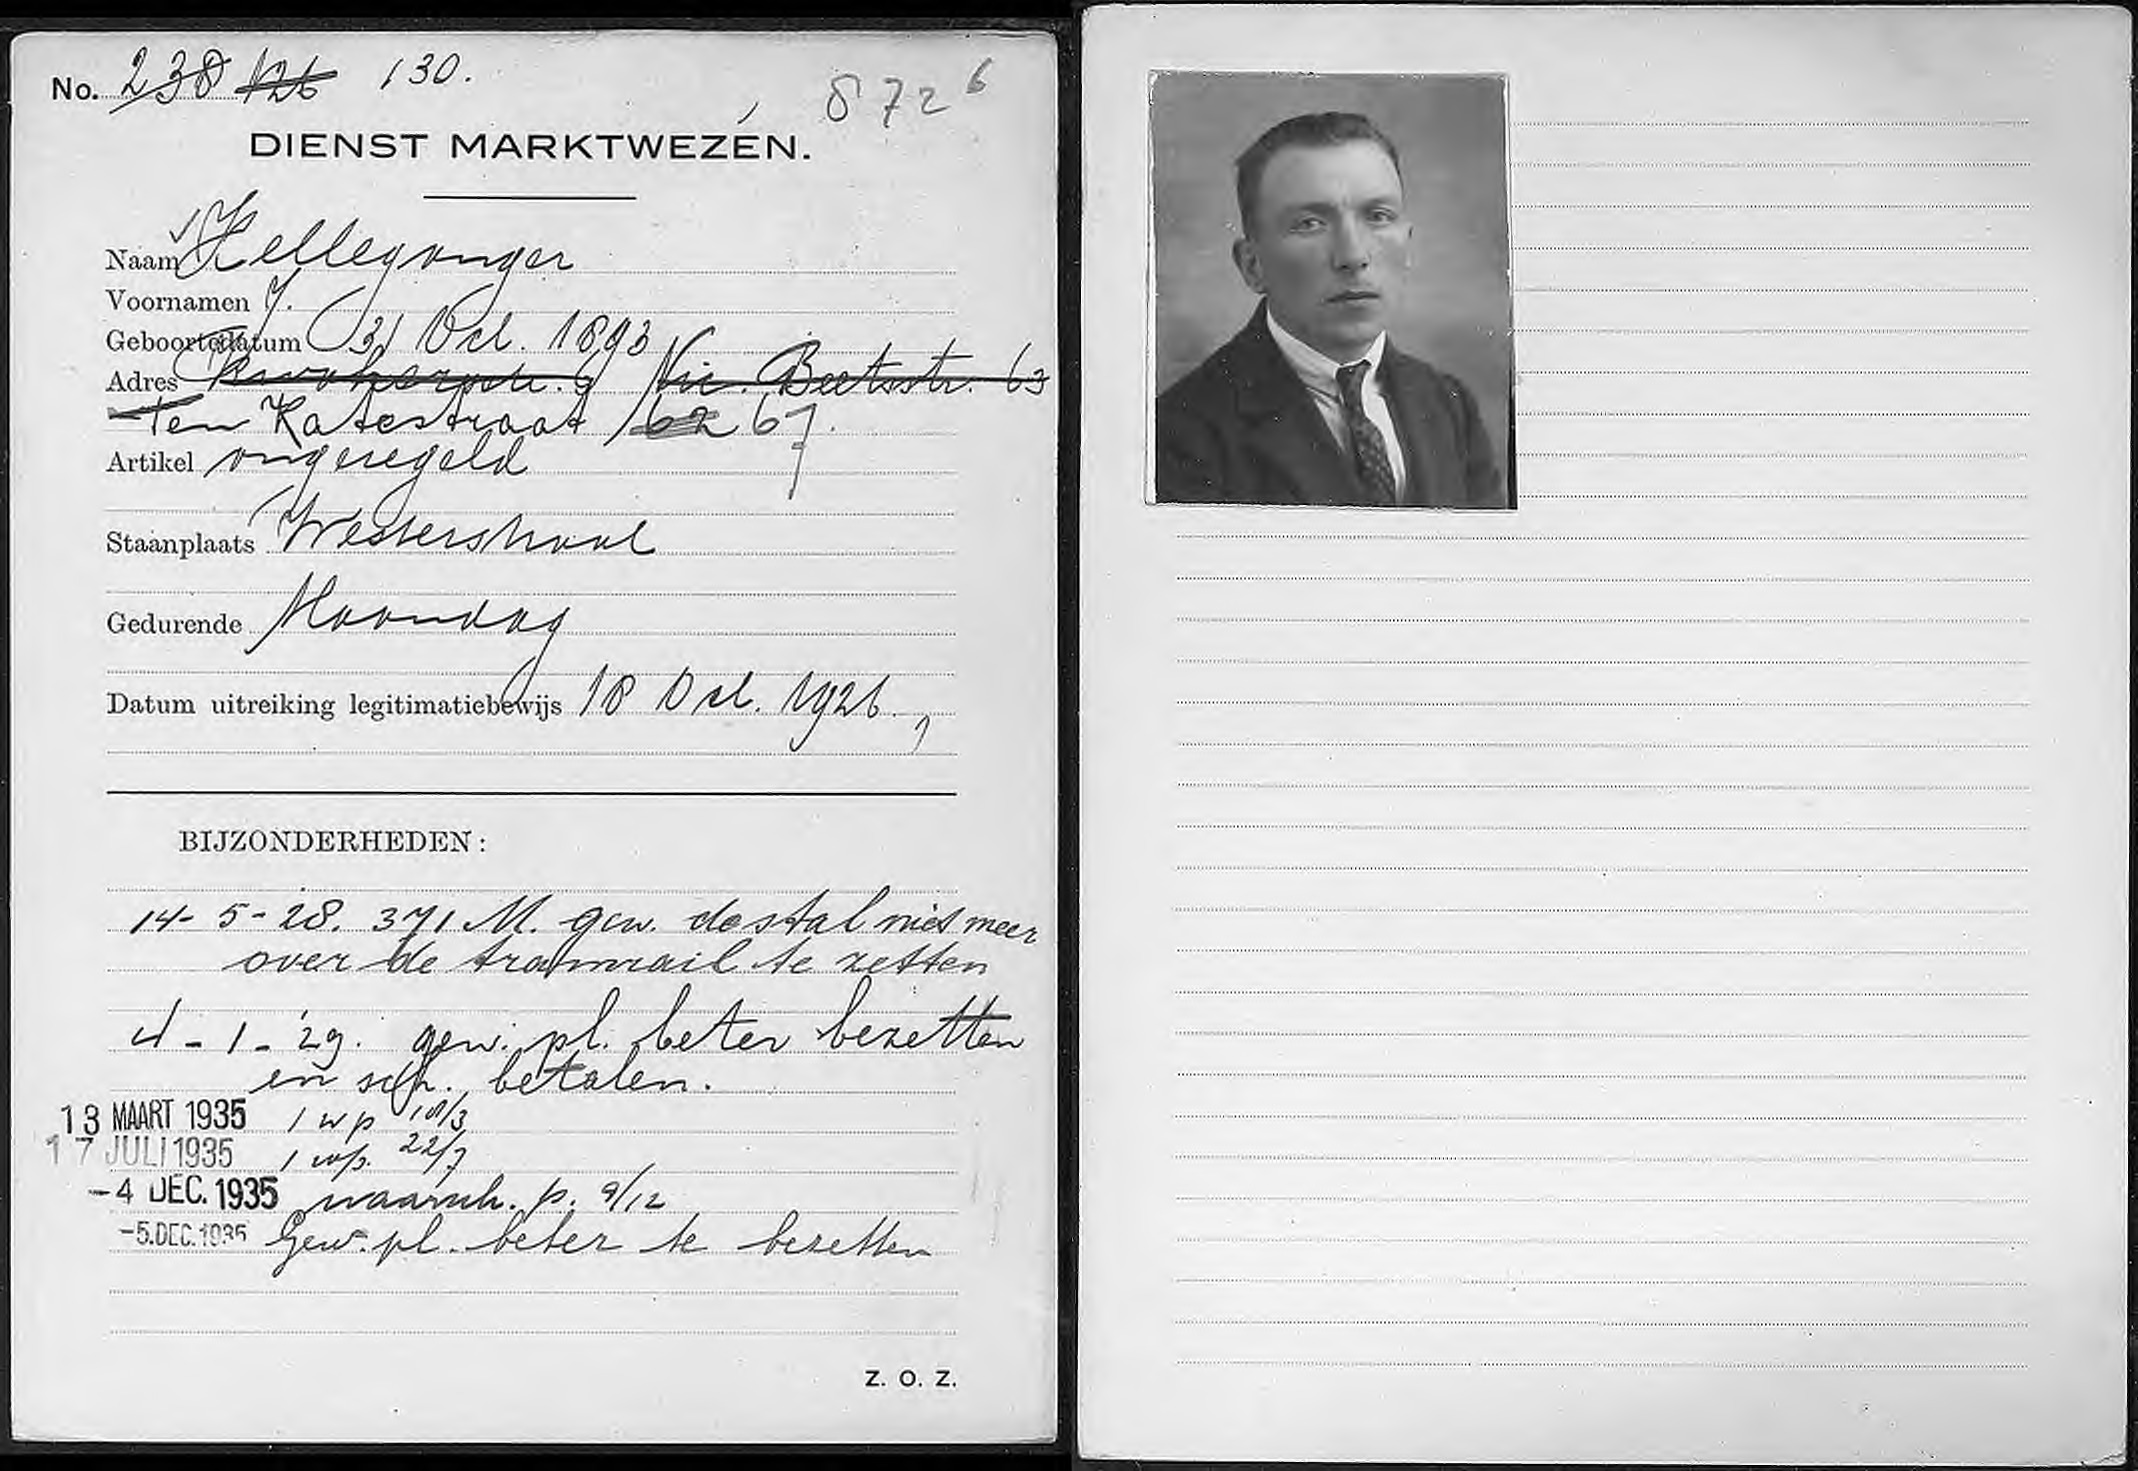 No. 238 126 130.
8726
DIENST MARKTWEZEN.
Naam Hellegonger
Voornamen J.
Geboortedatum 31 Oct. 1893
Adres 9 Nic. Beetsstr. 63
Ten Katestraat 62 67.
Artikel ongeregeld
Staanplaats Westerstraat
Gedurende Maandag
Datum uitreiking legitimatiebewijs 18 Oct. 1926.
BIJZONDERHEDEN:
14-5-28. 371 M. gew. de stal niet meer
over de tramrail te zetten
4-1-29. gew. pl. beter bezetten
en sch. betalen.
13 MAART 1935 1 wp 18/3
17 JULI 1935 1 wp. 22/7
-4 DEC. 1935 waarsch. p. 9/12
-5.DEC.1935 Gew. pl. beter te bezetten
Z. O. Z.